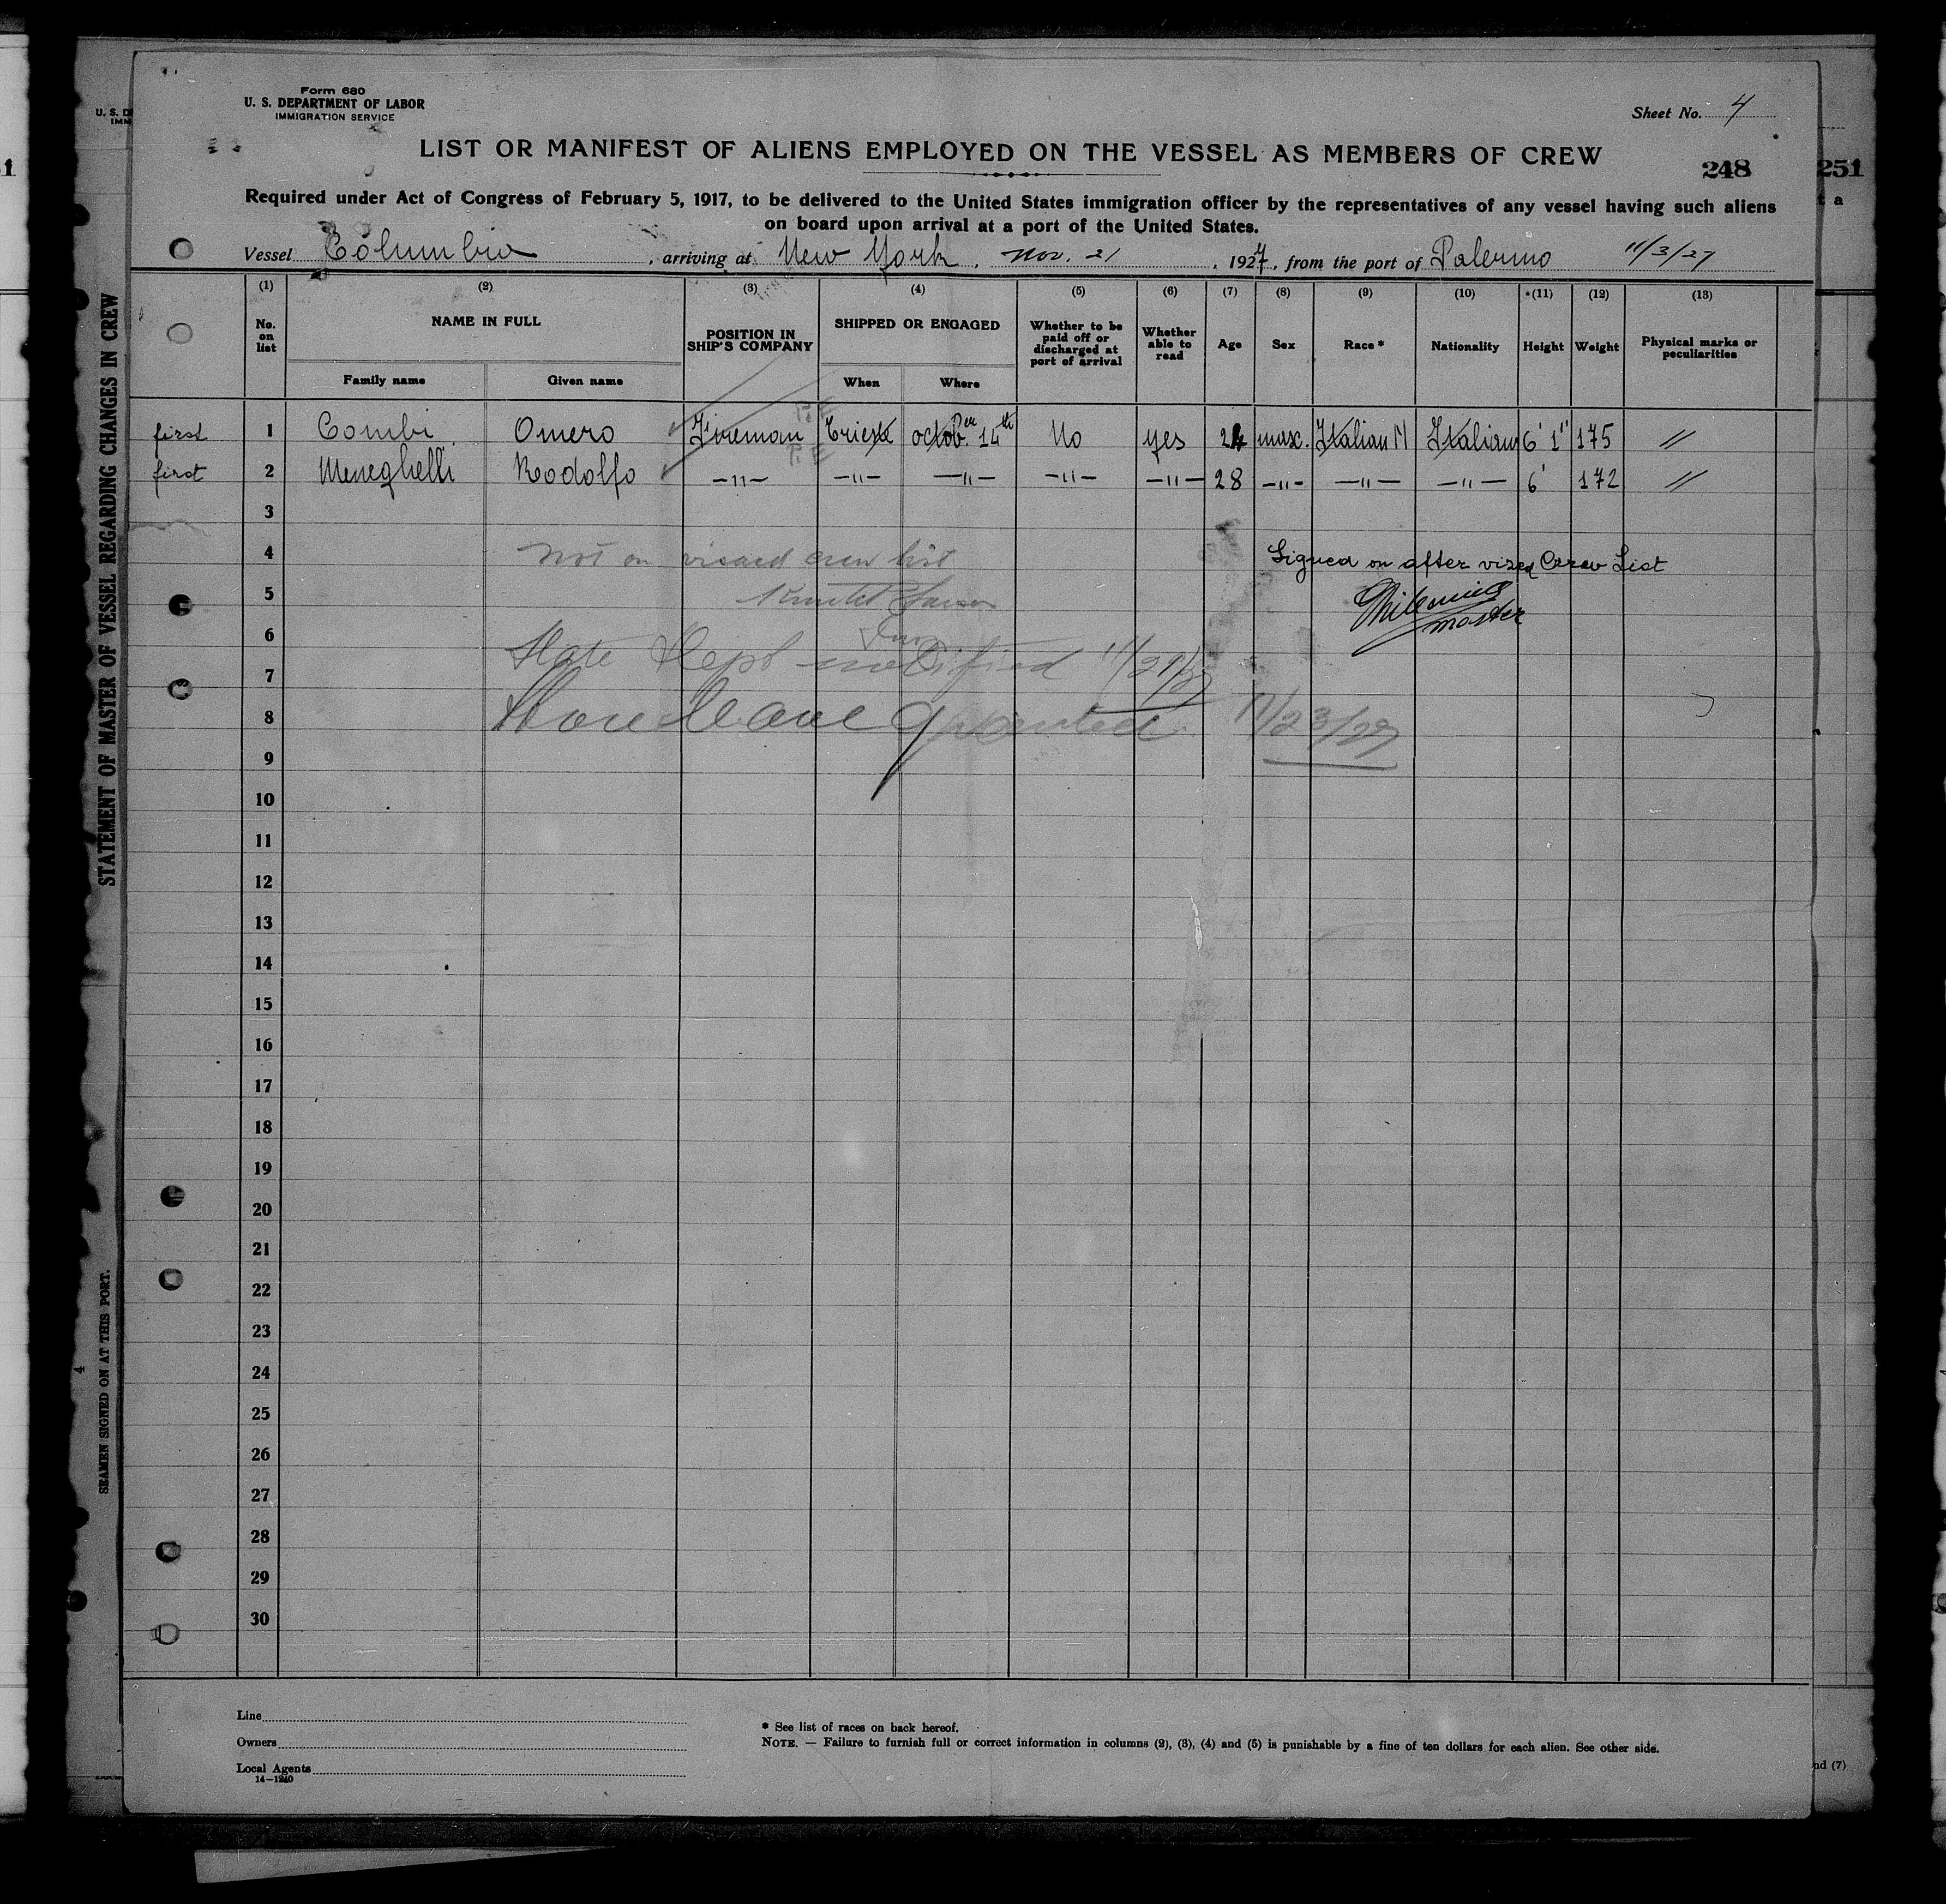 Form 680
U. S. DEPARTMENT OF LABOR
IMMIGRATION SERVICE
Sheet No. 4
LIST OR MANIFEST OF ALIENS EMPLOYED ON THE VESSEL AS MEMBERS OF CREW
248
251
Required under Act of Congress of February 5, 1917, to be delivered to the United States immigration officer by the representatives of any vessel having such aliens
on board upon arrival at a port of the United States.
Vessel Columbia, arriving at New York, Nov. 21, 1927, from the port of Palermo 11/3/27
STATEMENT OF MASTER OF VESSEL REGARDING CHANGES IN CREW
SEAMEN SIGNED ON AT THIS PORT.
(1) (2) (3) (4) (5) (6) (7) (8) (9) (10) (11) (12) (13)
No. on list NAME IN FULL POSITION IN SHIP'S COMPANY SHIPPED OR ENGAGED Whether to be paid off or discharged at port of arrival Whether able to read Age Sex Race * Nationality Height Weight Physical marks or peculiarities
Family name Given name When Where
first 1 Combi Omero Fireman Trieste octob.er 14th No yes 24 masc. Italian N Italian 6' 1" 175 //
first 2 Meneghelli Rodolfo —"— —"— —"— —"— —"— 28 —"— —"— —"— 6' 172 //
3
4 Not on visaed crew list Signed on after vized Crew List
5
master
6
State Dept notified 11/21/27
7
8 granted 11/23/27
9
10
11
12
13
14
15
16
17
18
19
20
21
22
23
24
25
26
27
28
29
30
Line
Owners
Local Agents
14—1240
* See list of races on back hereof.
NOTE. — Failure to furnish full or correct information in columns (2), (3), (4) and (5) is punishable by a fine of ten dollars for each alien. See other side.
nd (7)